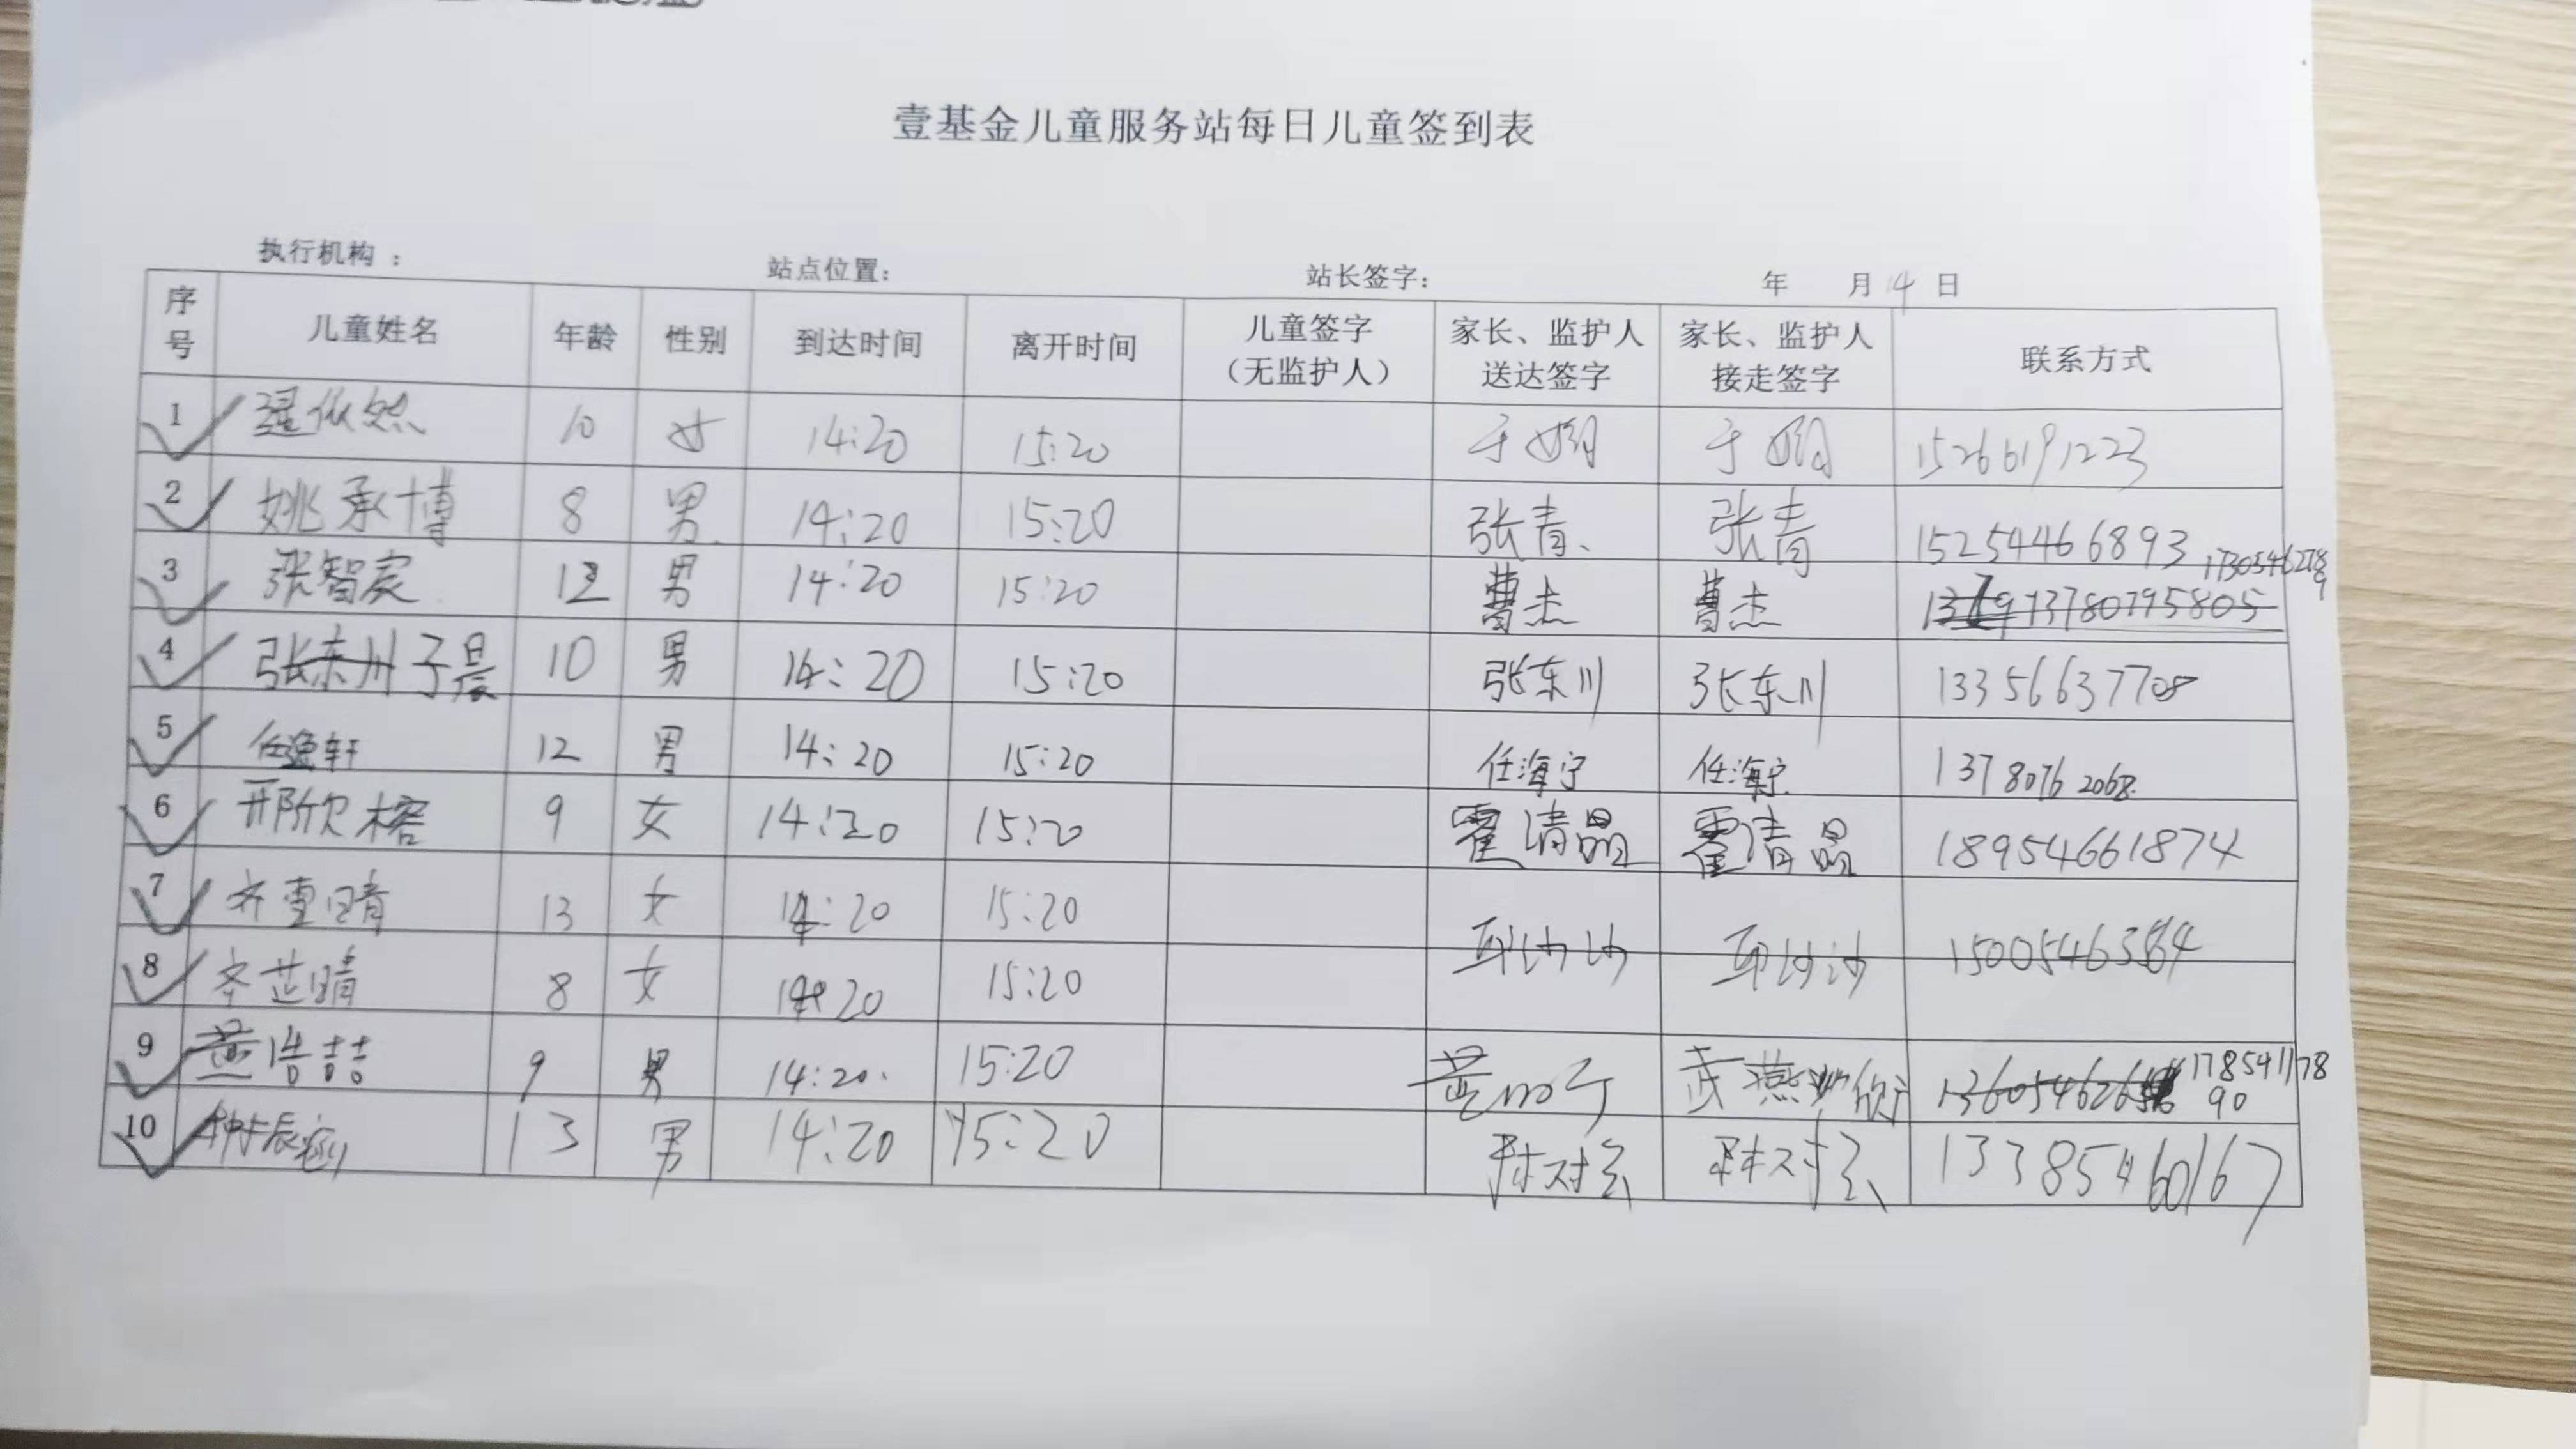 壹基金儿童服务站每日儿童签到表
执行机构： 站点位置： 站长签字： 年 月 14 日
序号 儿童姓名 年龄 性别 到达时间 离开时间 儿童签字（无监护人） 家长、监护人送达签字 家长、监护人接走签字 联系方式
1 依然 10 女 14:20 15:20 于 于 15266191223
2 姚承博 8 男 14:20 15:20 张青 张青 15254466893
3 张智宸 12 男 14:20 15:20 曹杰 曹杰 13780795805
4 张东川子晨 10 男 14:20 15:20 张东川 张东川 13356637708
5 任逸轩 12 男 14:20 15:20 任海宁 任海宁 13780762068
6 邢欣榕 9 女 14:20 15:20 霍清晶 霍清晶 18954661874
7 齐 晴 13 女 14:20 15:20
8 齐芷晴 8 女 14:20 15:20
9 黄浩喆 9 男 14:20 15:20 黄 武燕 17854117890
10 辰 13 男 14:20 15:20 13385460167